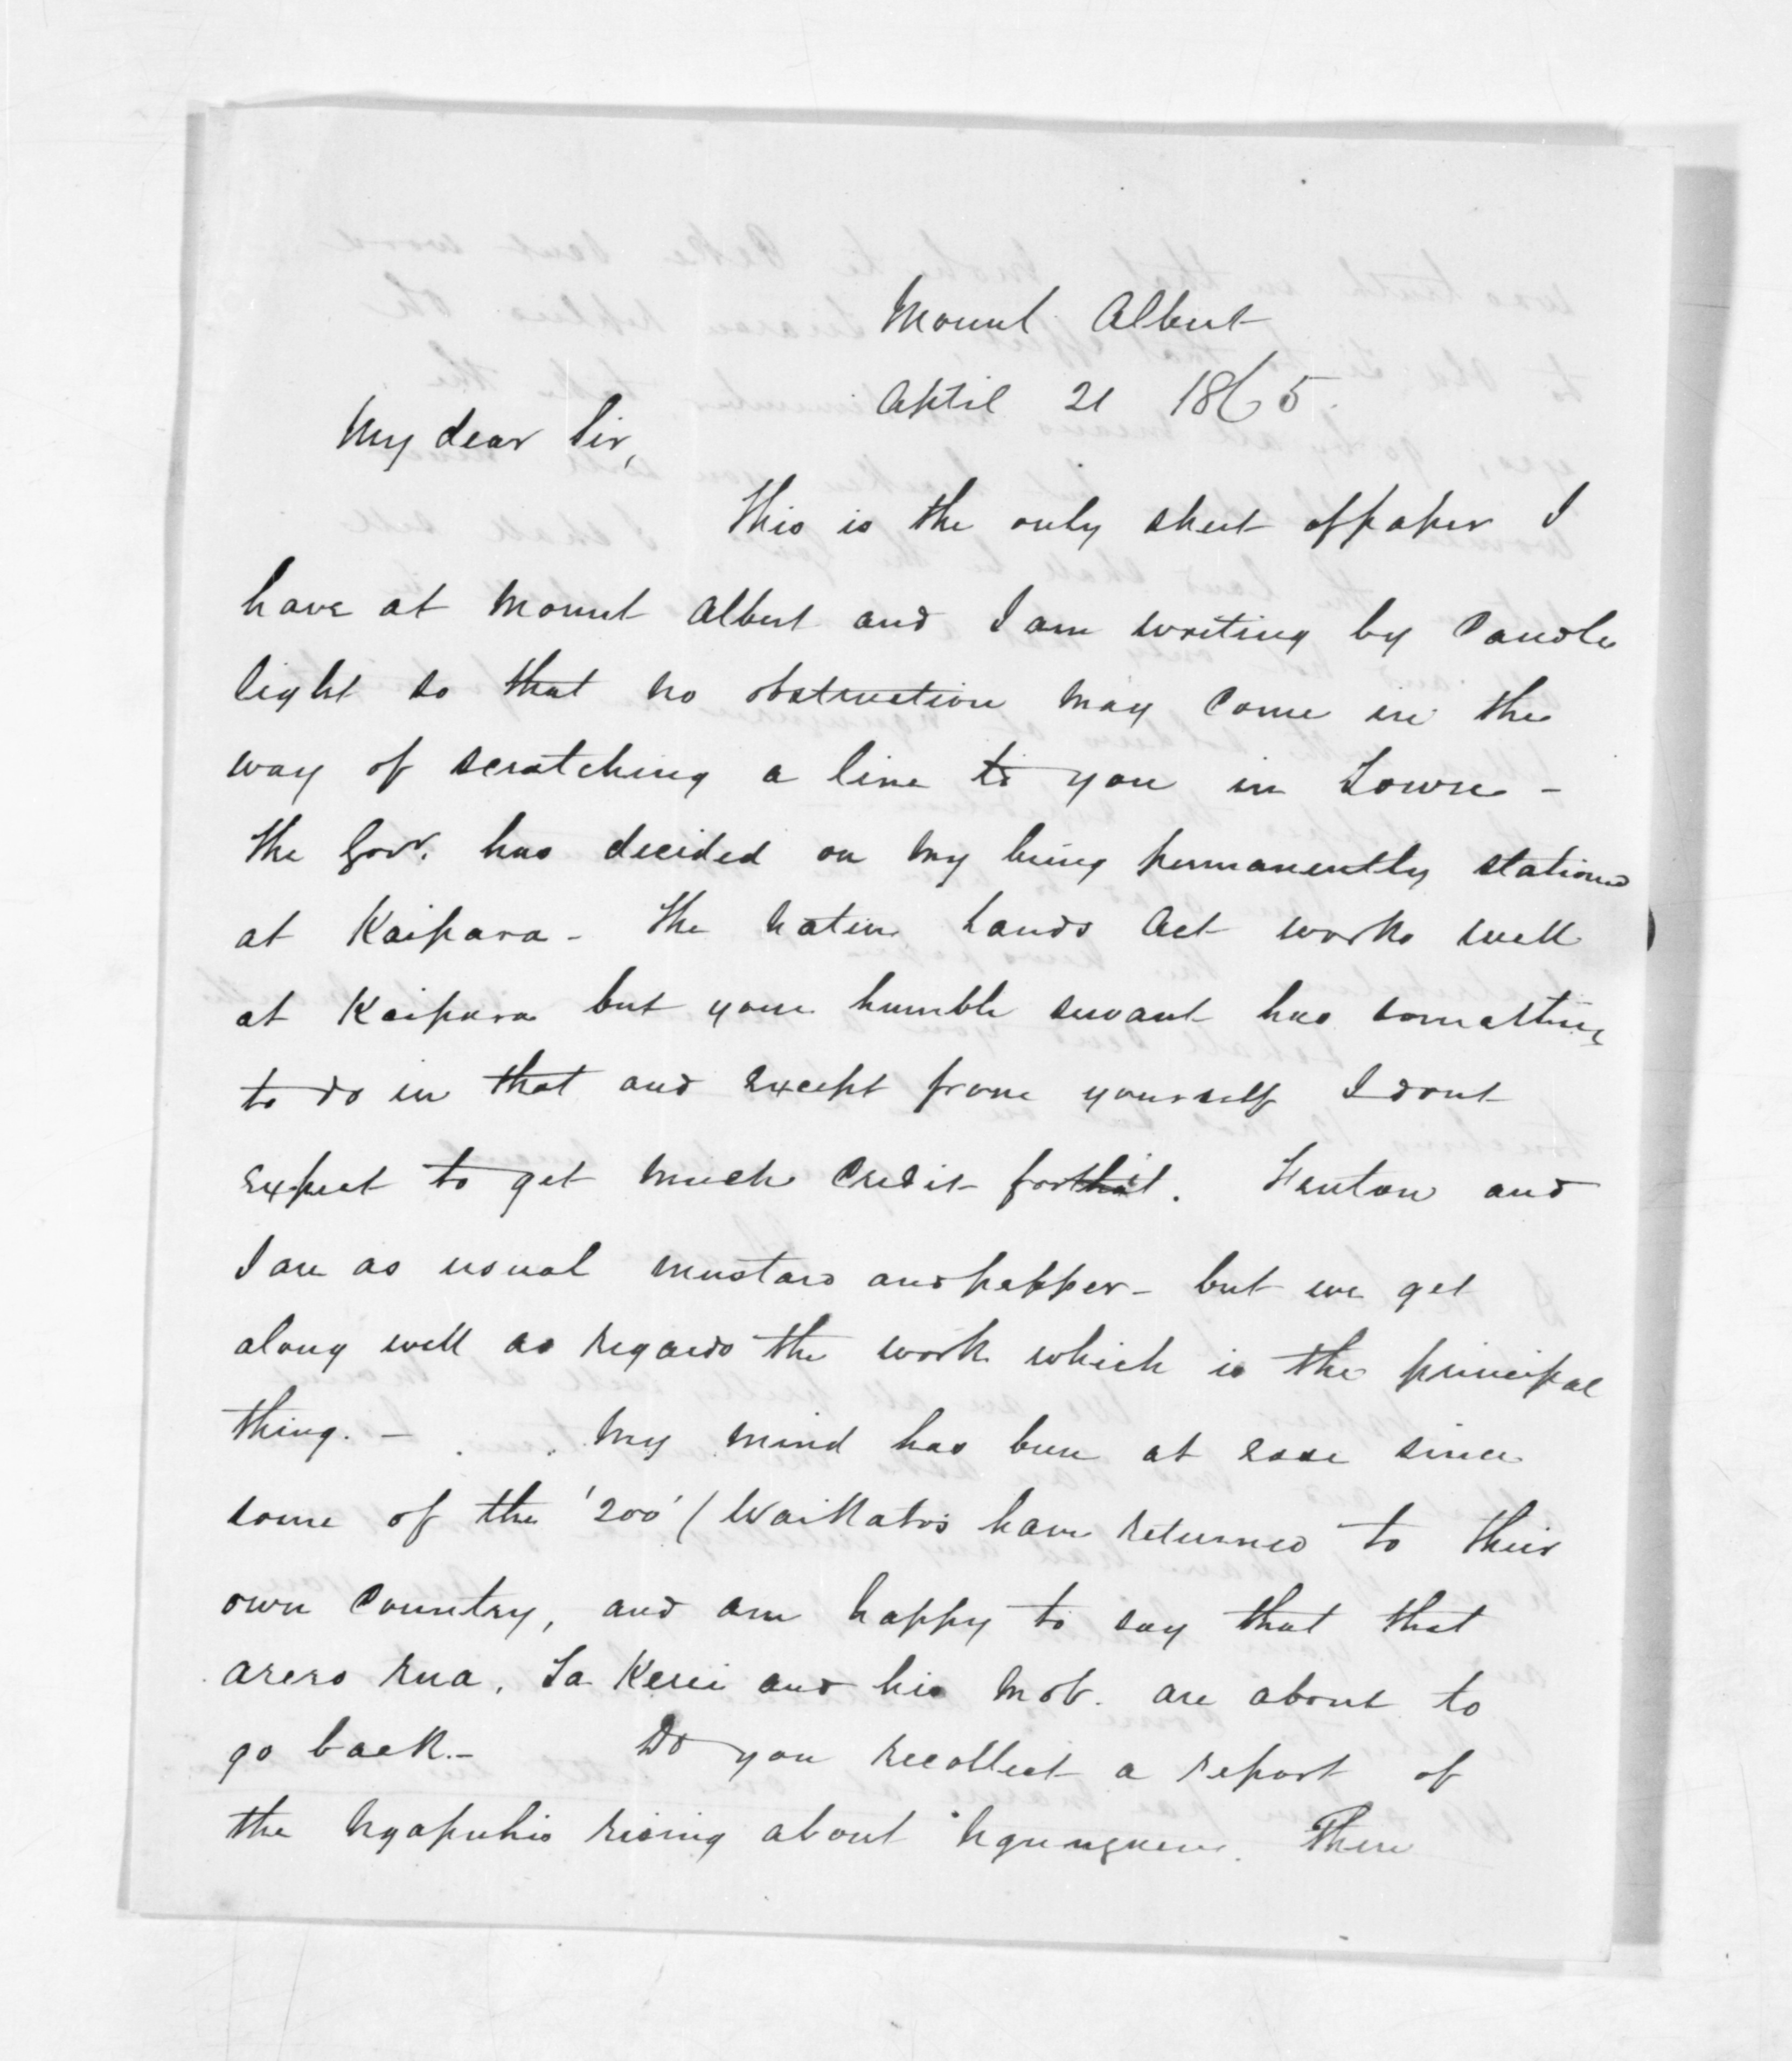 Mount Albert
April 21 1865.
My dear Sir,
This is the only sheet of paper I
have at Mount Albert and I am writing by Candle
light so that no obstruction may come in the
way of scratching a line to you in Town -
The Govr. has decided on my being permanently stationed
at Kaipara - The Native Lands Act works well
at Kaipara but your humble servant has something
to do in that and except from yourself I dont
expect to get much Credit for that. Fenton and
I are as usual mustard and pepper - but we get
along well as regards the work which is the principal
thing. - My mind has been at ease since
some of the '200' / Waikatos have returned to their
own Country, and am happy to say that that
arero rua, Ta Kerei and his mob. are about to
go back. - Do you recollect a report of
the Ngapuhis rising about Ngunguru. There